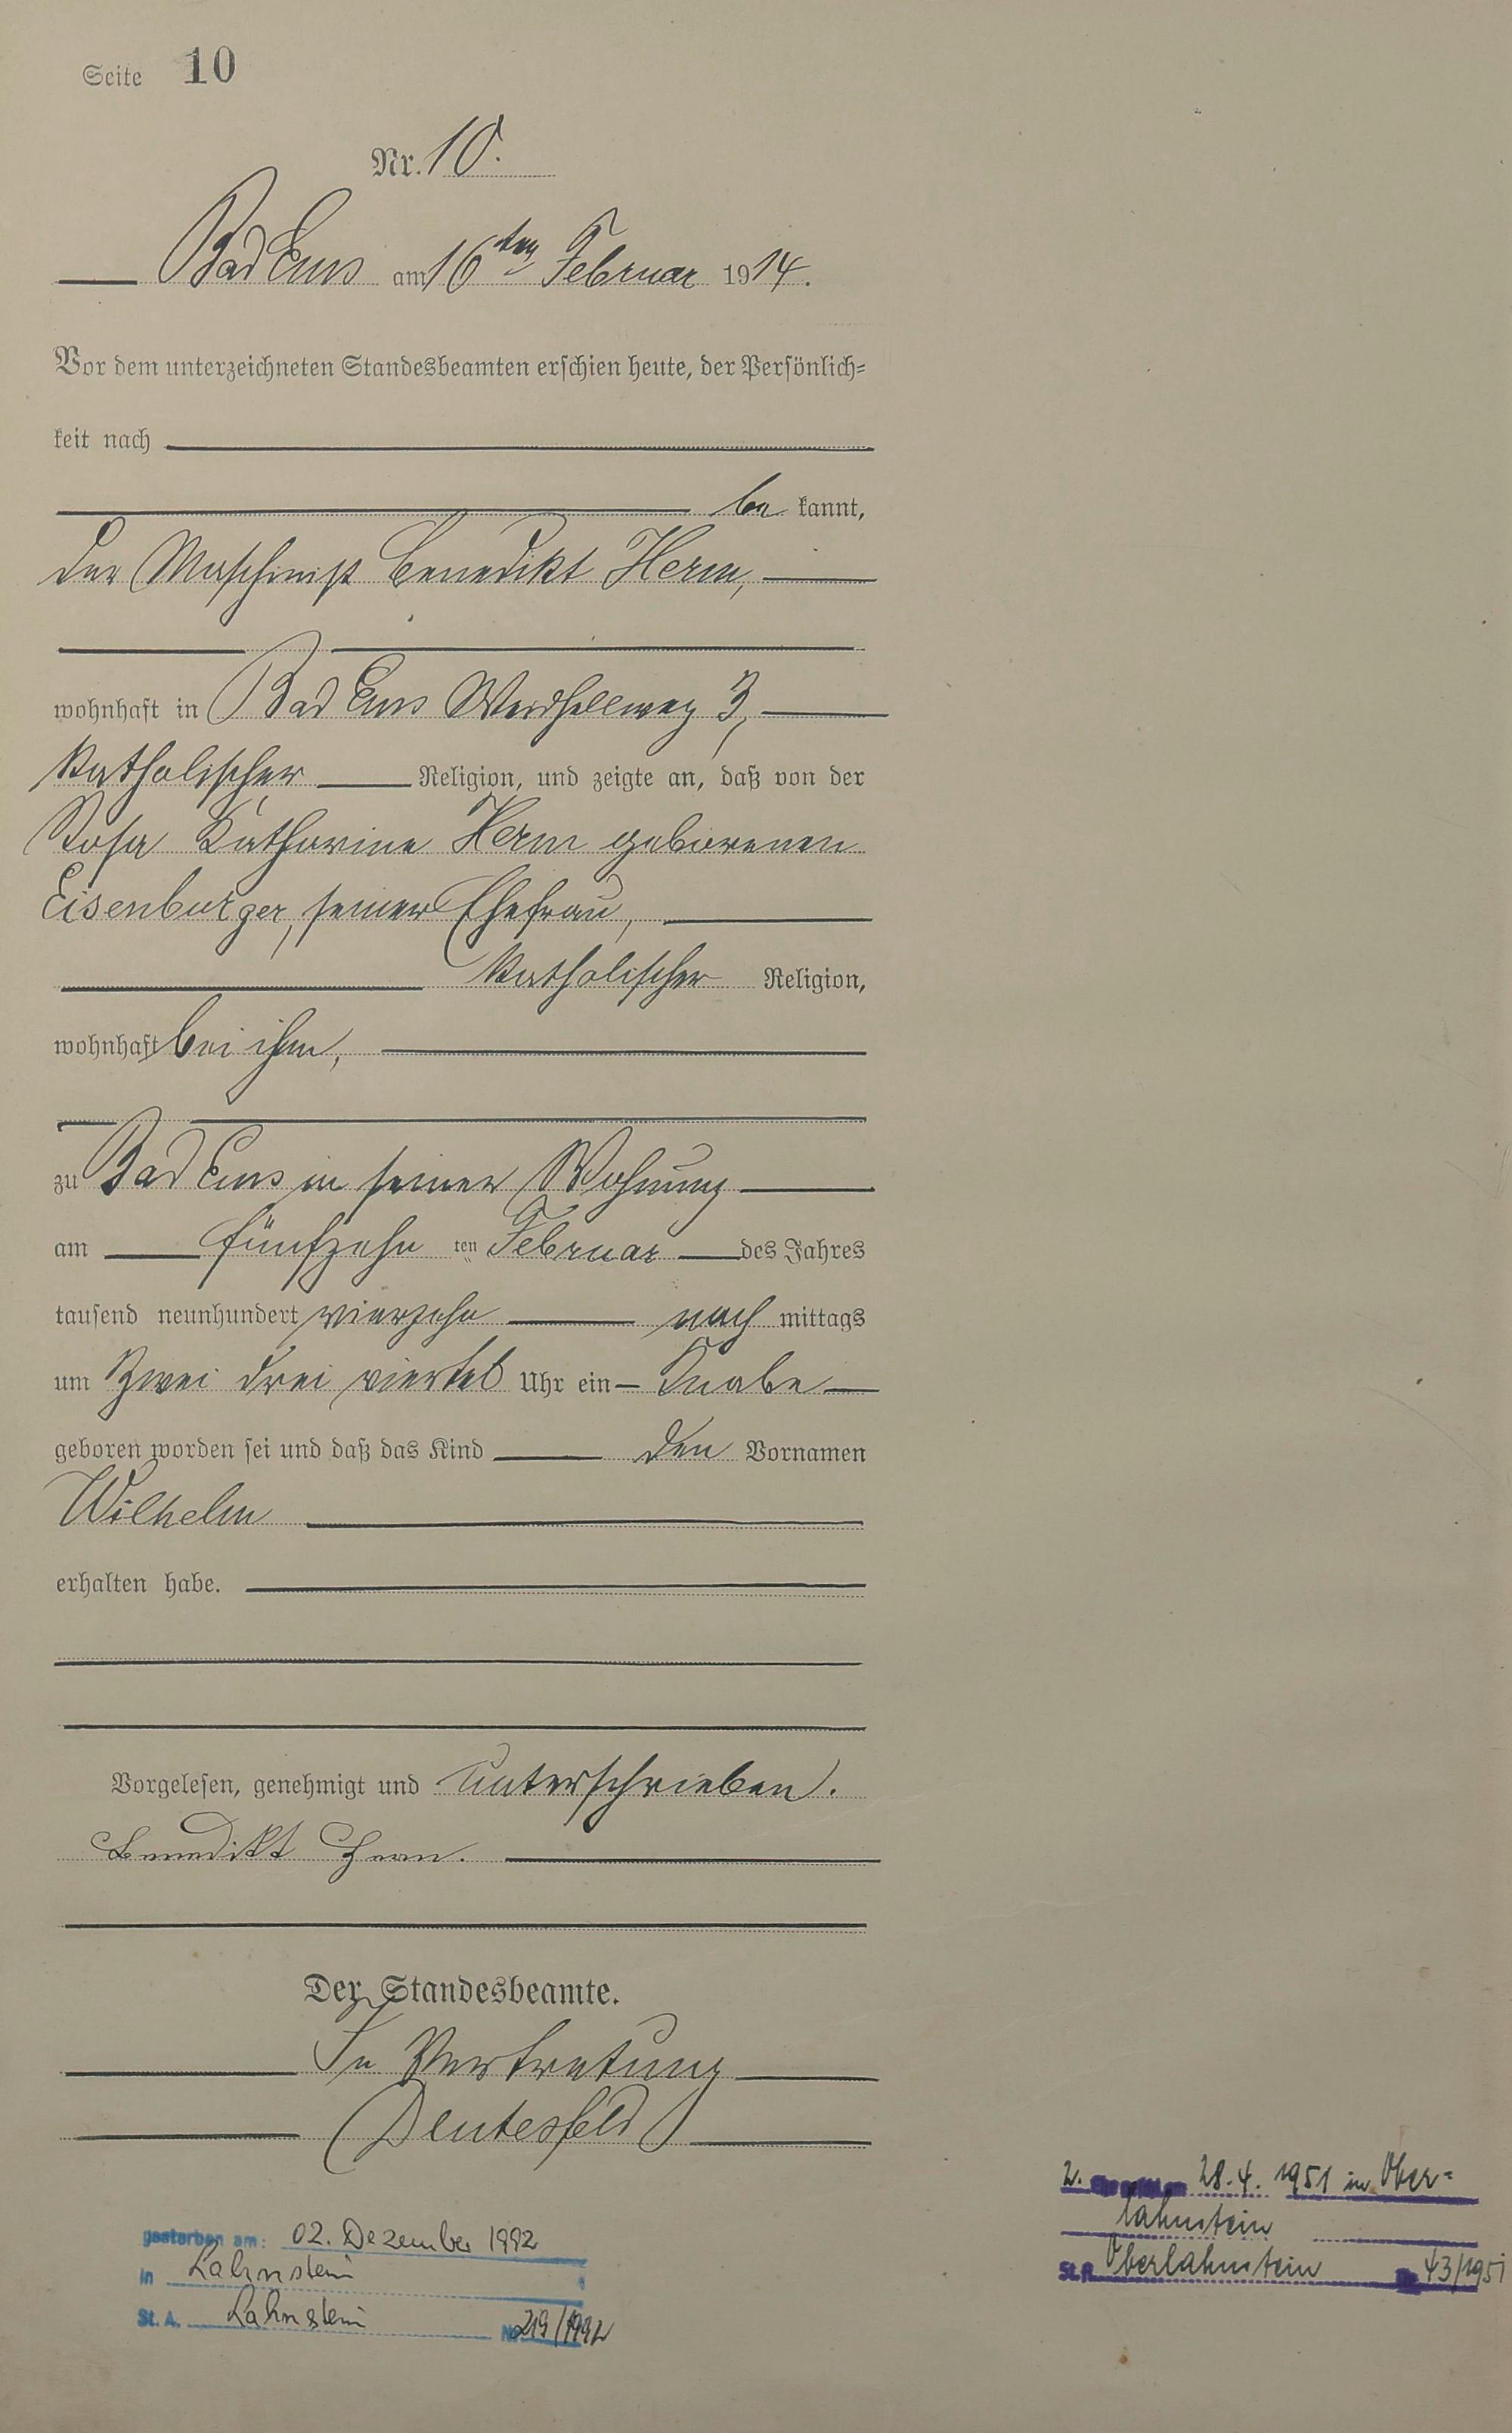 Seite 10
Nr. 10.
Bad Ems am 16ten Februar 1914.
Vor dem unterzeichneten Standesbeamten erschien heute, der Persönlich-
keit nach
be kannt,
der Maschinist Benedikt Herm,
wohnhaft in Bad Ems Weidhellweg 3,
katholischer Religion, und zeigte an, daß von der
Rosa Katharina Herm geborenen
Eisenburger, seiner Ehefrau,
katholischer Religion,
wohnhaft bei ihm,
zu Bad Ems in seiner Wohnung
am fünfzehn ten Februar des Jahres
tausend neunhundert vierzehn nach mittags
um zwei drei viertel Uhr ein Knabe
geboren worden sei und daß das Kind den Vornamen
Wilhelm
erhalten habe.
Vorgelesen, genehmigt und unterschrieben.
Benedikt Herm.
Der Standesbeamte.
In Vertretung
Deutesfeld
2. 28.4. 1951 in Ober=
lahnstein
St.A. Oberlahnstein 43/1951
gestorben am: 02. Dezember 1992
in Lahnstein
St. A. Lahnstein Nr. 219/1992